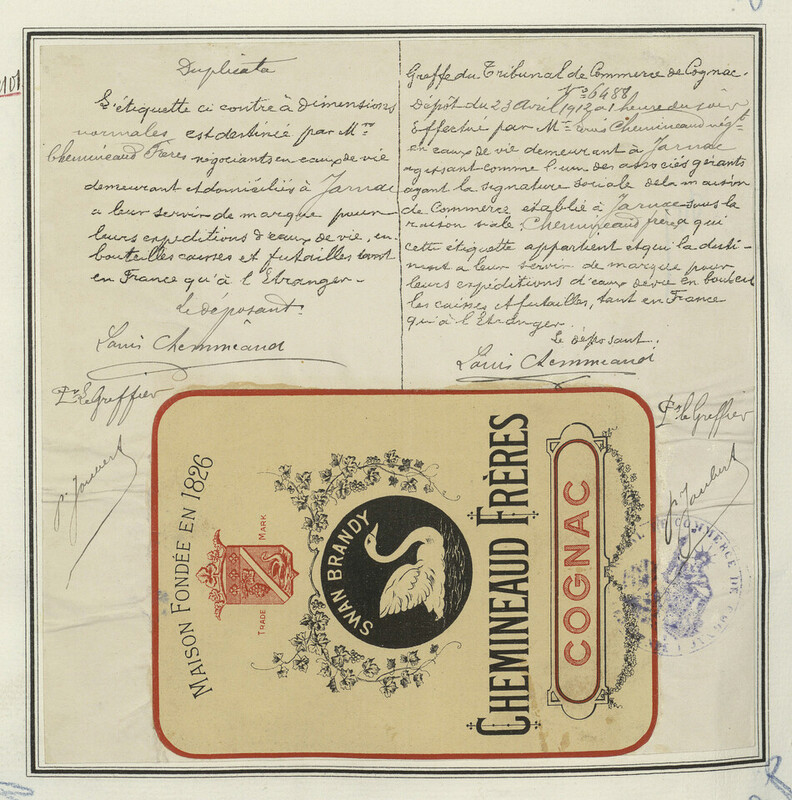 101
Duplicata
L'étiquette ci contre à dimensions
normales est destinée par Mrs
Chemineaud Frères négociants en eaux de vie
demeurant et domiciliés à Jarnac
a leur servir de marque pour
leurs expéditions d'eaux de vie, en
bouteilles caisses et futailles tant
en France qu'à l'Etranger
Le déposant.
Louis Chemineaud
Pr le Greffier
P. Joubert
Greffe du Tribunal de Commerce de Cognac.
No 6488
Dépôt du 23 Avril 1912 à 1 heure du soir
Effectué par Mr Louis Chemineaud négt
en eaux de vie demeurant à Jarnac
agissant comme l'un des associés gérants
ayant la signature sociale de la maison
de Commerce établie à Jarnac sous la
raison sale Chemineaud frères a qui
cette étiquette appartient et qui la desti-
nent a leur servir de marque pour
leurs expéditions d'eaux de vie en bouteil
les caisses et futailles, tant en France
qu'à l'Etranger.
Le déposant.
Louis Chemineaud
Pr le Greffier
P. Joubert
MAISON FONDÉE EN 1826
TRADE MARK
SWAN BRANDY
CHEMINEAUD FRÈRES
COGNAC
DE COMMERCE DE COGNAC